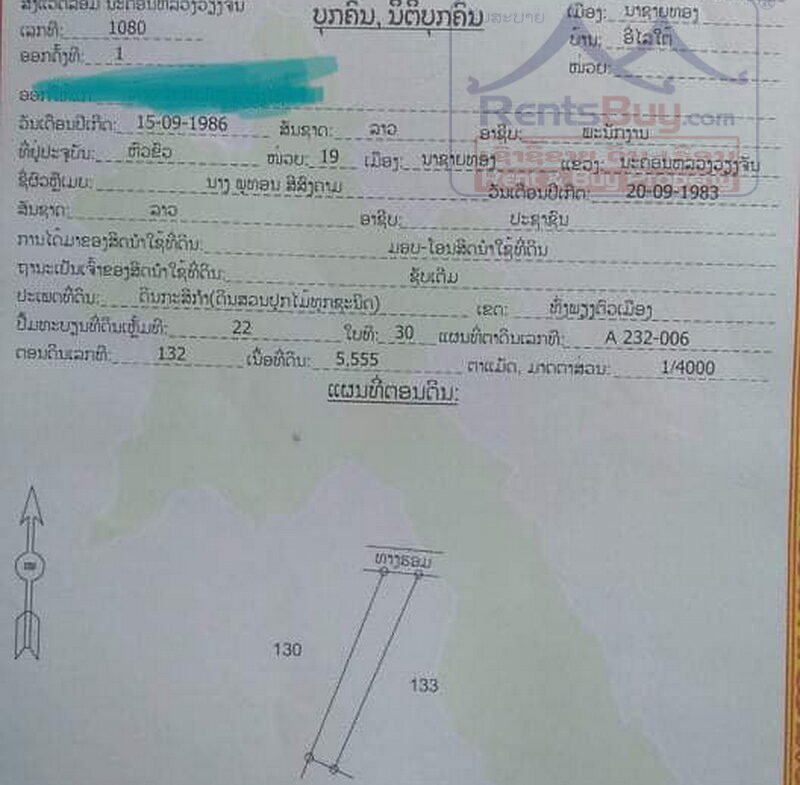 ສິ່ງແວດລ້ອມ ນະຄອນຫລວງວຽງຈັນ
ບຸກຄົນ, ນິຕິບຸກຄົນ
ສະບາຍ
ເມືອງ: ນາຊາຍທອງ
ເລກທີ: 1080
ບ້ານ: ອີ່ໄລໃຕ້
ອອກຄັ້ງທີ: 1
ໜ່ວຍ:
ອອກໃຫ້ແກ່
RentsBuy.com
ວັນເດືອນປີເກີດ: 15-09-1986 ສັນຊາດ: ລາວ ອາຊີບ: ພະນັກງານ
ທີ່ຢູ່ປະຈຸບັນ: ຫົວຂົວ ໜ່ວຍ: 19 ເມືອງ: ນາຊາຍທອງ ແຂວງ: ນະຄອນຫລວງວຽງຈັນ
Rent & Buy Property
ຊື່ຜົວຫຼືເມຍ: ນາງ ພູທອນ ສີສົງຄາມ ວັນເດືອນປີເກີດ: 20-09-1983
ສັນຊາດ: ລາວ ອາຊີບ: ປະຊາຊົນ
ການໄດ້ມາຂອງສິດນຳໃຊ້ທີ່ດິນ: ມອບ-ໂອນສິດນຳໃຊ້ທີ່ດິນ
ຖານະເປັນເຈົ້າຂອງສິດນຳໃຊ້ທີ່ດິນ: ຊັບເດີມ
ປະເພດທີ່ດິນ: ດິນກະສິກຳ(ດິນສວນປູກໄມ້ທຸກຊະນິດ) ເຂດ: ທົ່ງພຽງຕົວເມືອງ
ປຶ້ມທະບຽນທີ່ດິນເຫຼັ້ມທີ: 22 ໃບທີ: 30 ແຜນທີ່ຕາດິນເລກທີ: A 232-006
ຕອນດິນເລກທີ: 132 ເນື້ອທີ່ດິນ: 5,555 ຕາແມັດ, ມາດຕາສ່ວນ: 1/4000
ແຜນທີ່ຕອນດິນ:
ທາງຮອມ
130
133